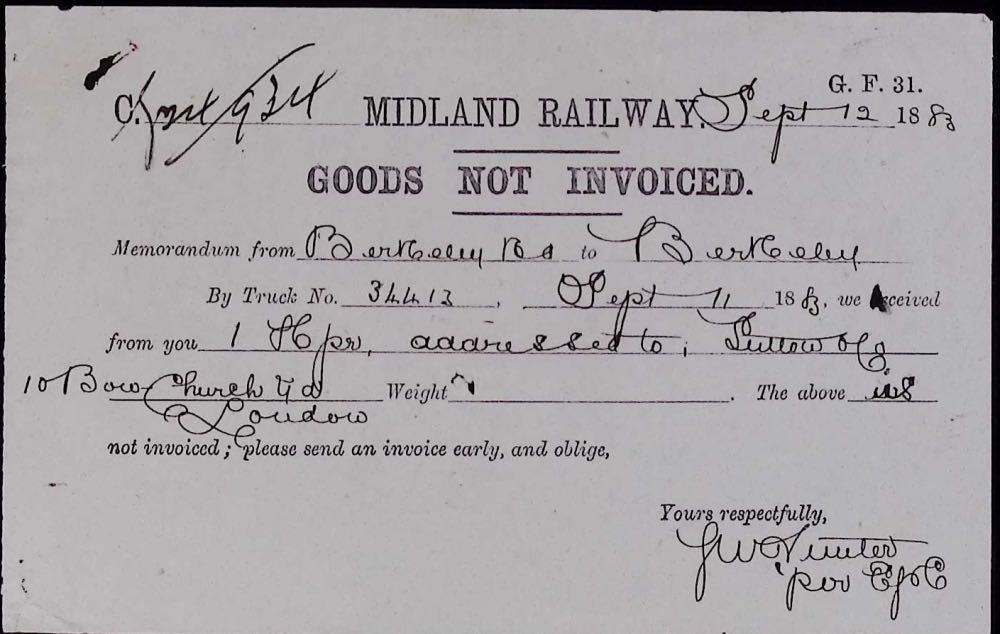 G. F. 31.
C. MIDLAND RAILWAY. Sept 12 1883
GOODS NOT INVOICED.
Memorandum from Berkeley Rd to Berkeley
By Truck No. 34413, Sept 11 1883, we received
from you 1 Hpr, addressed to; Sutton & Co
10 Bow Church Yd Weight . The above is
London
not invoiced; please send an invoice early, and oblige,
Yours respectfully,
per